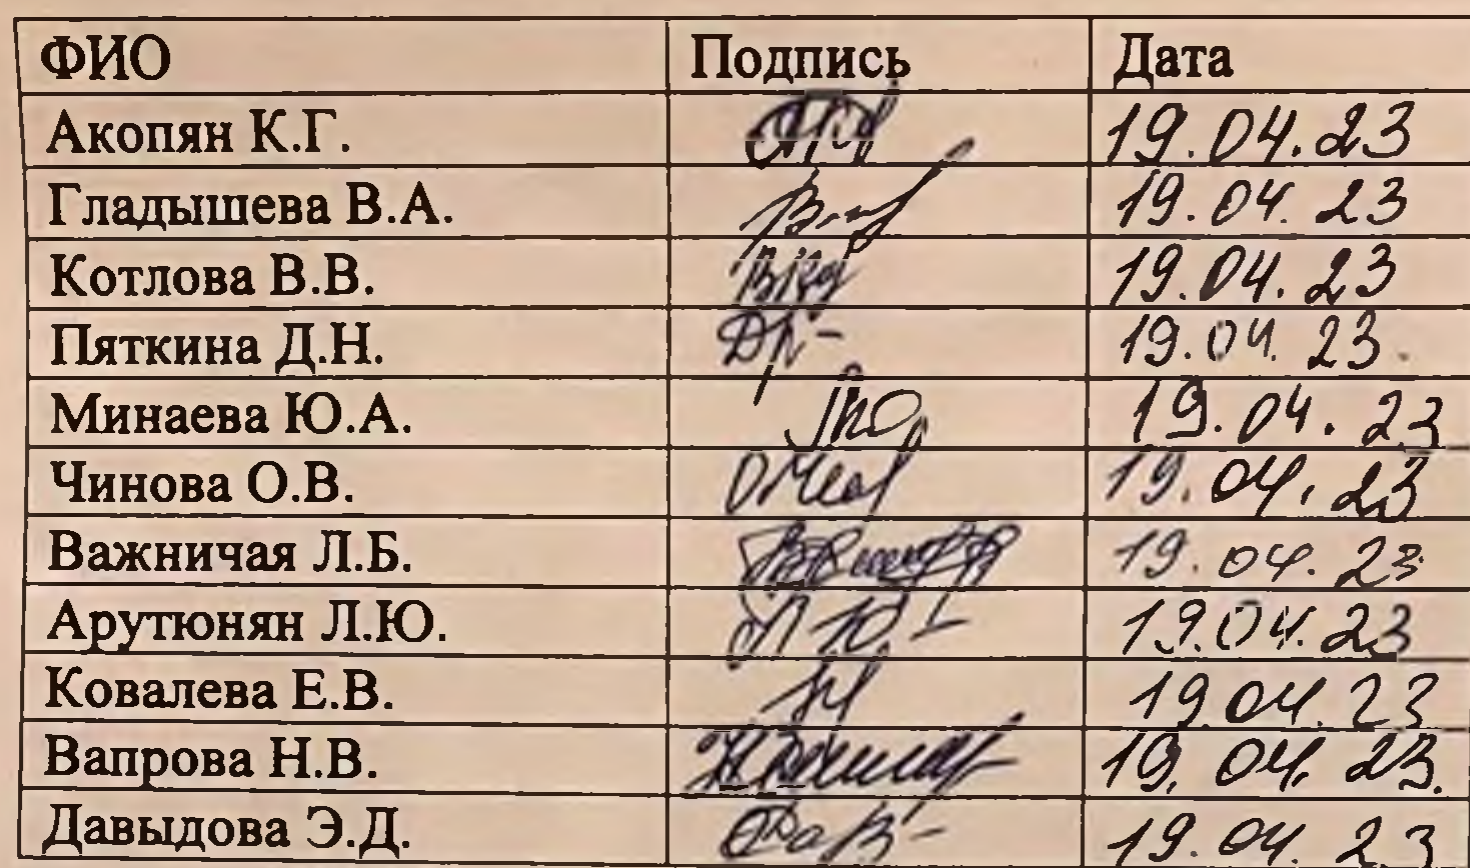 ФИО Подпись Дата
Акопян К.Г. 19.04.23
Гладышева В.А. 19.04.23
Котлова В.В. 19.04.23
Пяткина Д.Н. 19.04.23.
Минаева Ю.А. 19.04.23
Чинова О.В. 19.04.23
Важничая Л.Б. 19.04.23
Арутюнян Л.Ю. 19.04.23
Ковалева Е.В. 19.04.23
Вапрова Н.В. 19.04.23.
Давыдова Э.Д. 19.04.23